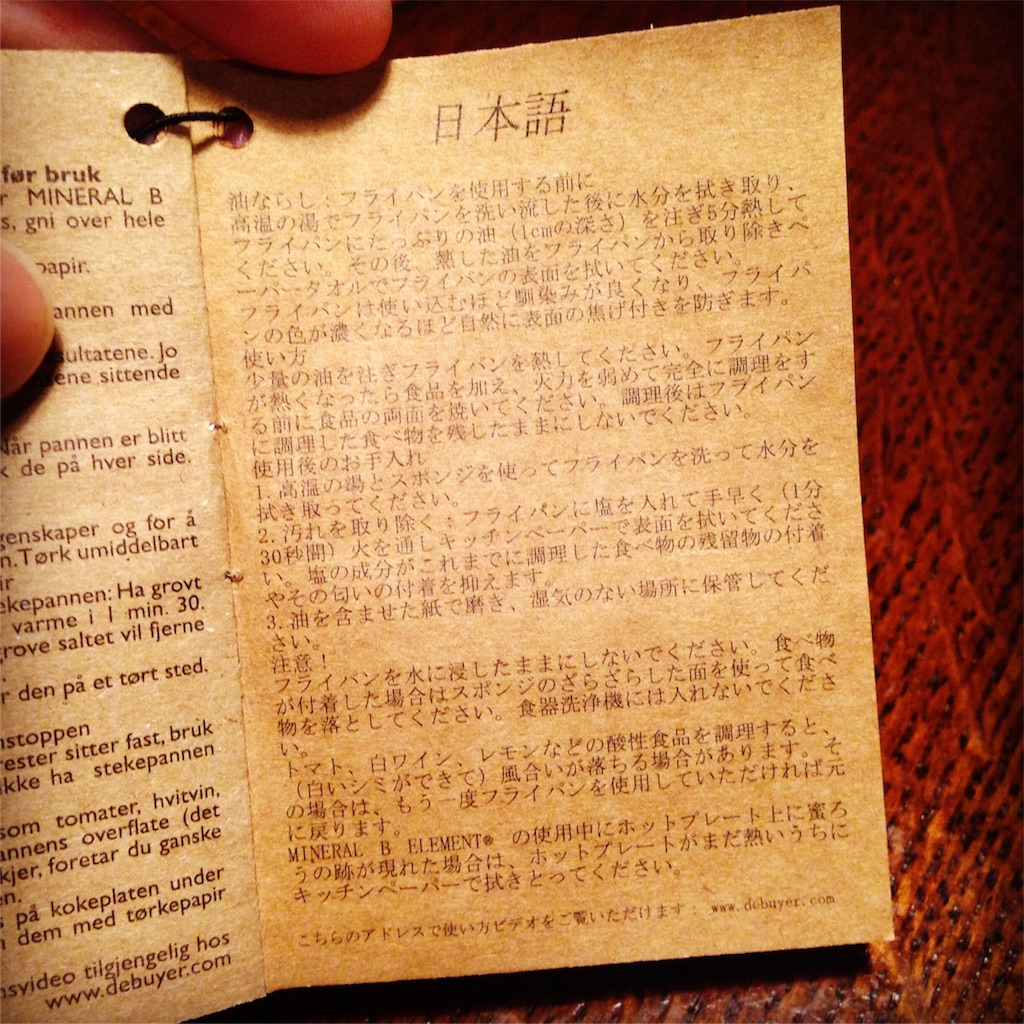 før bruk
MINERAL B
s, gni over hele
papir.
annen med
sultatene. Jo
sene sittende
Når pannen er blitt
de på hver side.
genskaper og for å
n. Tørk umiddelbart
ekepannen: Ha grovt
varme i 1 min. 30.
grove saltet vil fjerne
r den på et tørt sted.
nstoppen
rester sitter fast, bruk
ikke ha stekepannen
som tomater, hvitvin,
annens overflate (det
kjer, foretar du ganske
en.
på kokeplaten under
dem med tørkepapir
nsvideo tilgjengelig hos
www.debuyer.com
日本語
油ならし：フライパンを使用する前に
高温の湯でフライパンを洗い流した後に水分を拭き取り、
フライパンにたっぷりの油（1cmの深さ）を注ぎ5分熱して
ください。その後、熱した油をフライパンから取り除きペ
ーパータオルでフライパンの表面を拭いてください。
フライパンは使い込むほど馴染みが良くなり、フライパ
ンの色が濃くなるほど自然に表面の焦げ付きを防ぎます。
使い方
少量の油を注ぎフライパンを熱してください。フライパン
が熱くなったら食品を加え、火力を弱めて完全に調理をす
る前に食品の両面を焼いてください。調理後はフライパン
に調理した食べ物を残したままにしないでください。
使用後のお手入れ
1. 高温の湯とスポンジを使ってフライパンを洗って水分を
拭き取ってください。
2. 汚れを取り除く：フライパンに塩を入れて手早く（1分
30秒間）火を通しキッチンペーパーで表面を拭いてくださ
い。塩の成分がこれまでに調理した食べ物の残留物の付着
やその匂いの付着を抑えます。
3. 油を含ませた紙で磨き、湿気のない場所に保管してくだ
さい。
注意！
フライパンを水に浸したままにしないでください。食べ物
が付着した場合はスポンジのざらざらした面を使って食べ
物を落としてください。食器洗浄機には入れないでくださ
い。
トマト、白ワイン、レモンなどの酸性食品を調理すると、
（白いシミができて）風合いが落ちる場合があります。そ
の場合は、もう一度フライパンを使用していただければ元
に戻ります。
MINERAL B ELEMENT® の使用中にホットプレート上に蜜ろ
うの跡が現れた場合は、ホットプレートがまだ熱いうちに
キッチンペーパーで拭きとってください。
こちらのアドレスで使い方ビデオをご覧いただけます：www.debuyer.com